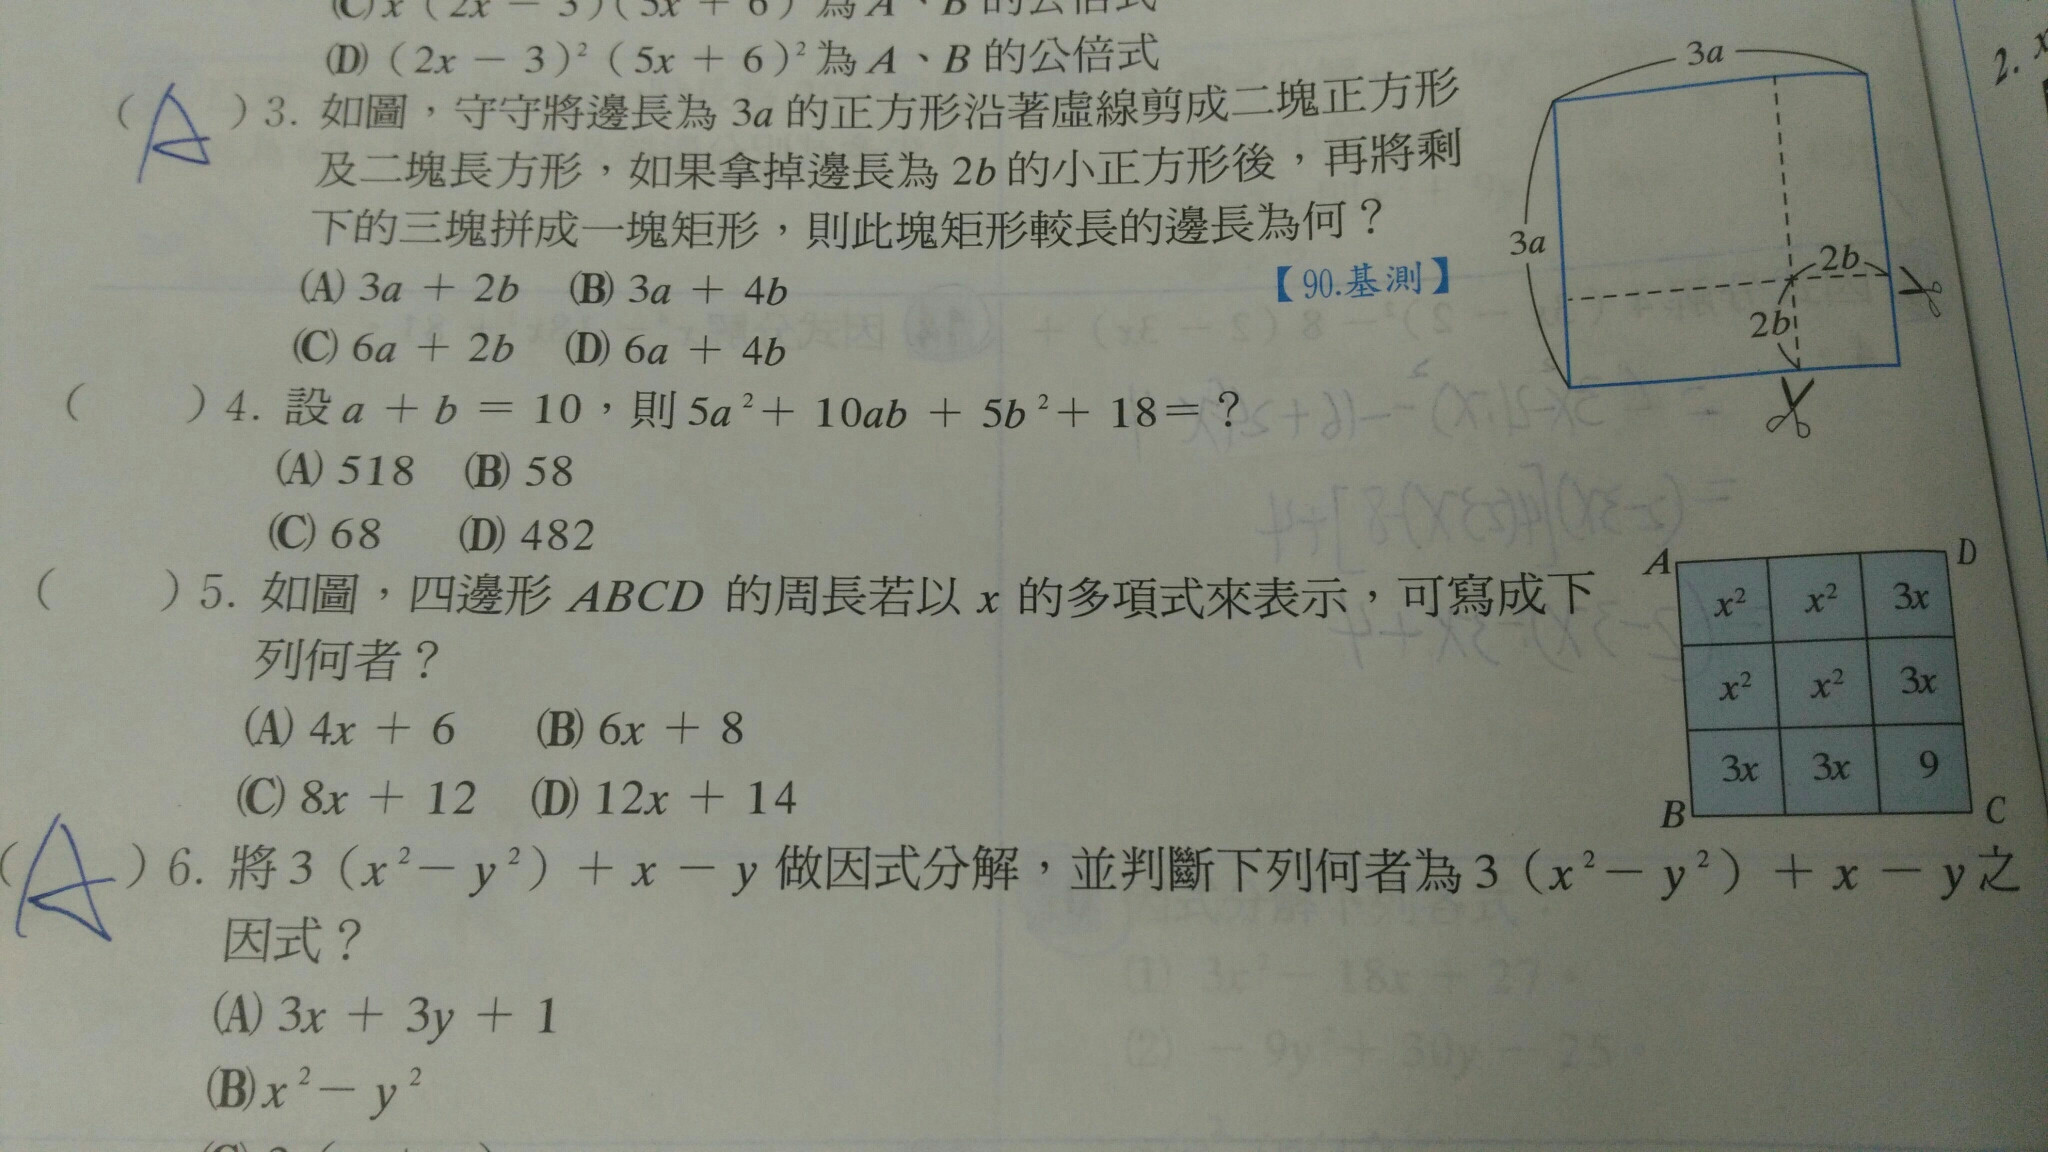 (C) x（2x － 3）(5x ＋ 6）為 A、B 的公倍式
(D)（2x － 3）²（5x ＋ 6）² 為 A、B 的公倍式
（ A ）3. 如圖，守守將邊長為 3a 的正方形沿著虛線剪成二塊正方形
及二塊長方形，如果拿掉邊長為 2b 的小正方形後，再將剩
下的三塊拼成一塊矩形，則此塊矩形較長的邊長為何？
【90.基測】
(A) 3a ＋ 2b (B) 3a ＋ 4b
(C) 6a ＋ 2b (D) 6a ＋ 4b
3a
3a
2b
2b
2. x
（ ）4. 設 a ＋ b ＝ 10，則 5a²＋ 10ab ＋ 5b²＋ 18＝？
(A) 518 (B) 58
(C) 68 (D) 482
（ ）5. 如圖，四邊形 ABCD 的周長若以 x 的多項式來表示，可寫成下
列何者？
(A) 4x ＋ 6 (B) 6x ＋ 8
(C) 8x ＋ 12 (D) 12x ＋ 14
A D
x² x² 3x
x² x² 3x
3x 3x 9
B C
（ A ）6. 將 3（x²－ y²）＋ x － y 做因式分解，並判斷下列何者為 3（x²－ y²）＋ x － y 之
因式？
(A) 3x ＋ 3y ＋ 1
(B) x²－ y²